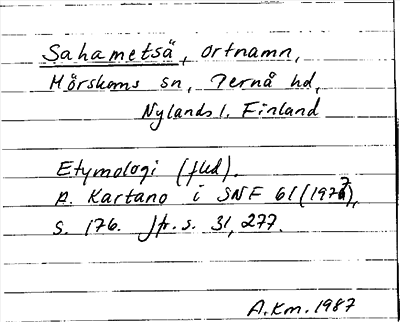 Sahametsä, ortnamn,
Mörskoms sn, Pernå hd,
Nylands l. Finland
Etymologi (fled).
A. Kartano i SNF 61 (1971),
s. 176. Jfr. s. 31, 277.
A.Km. 1987